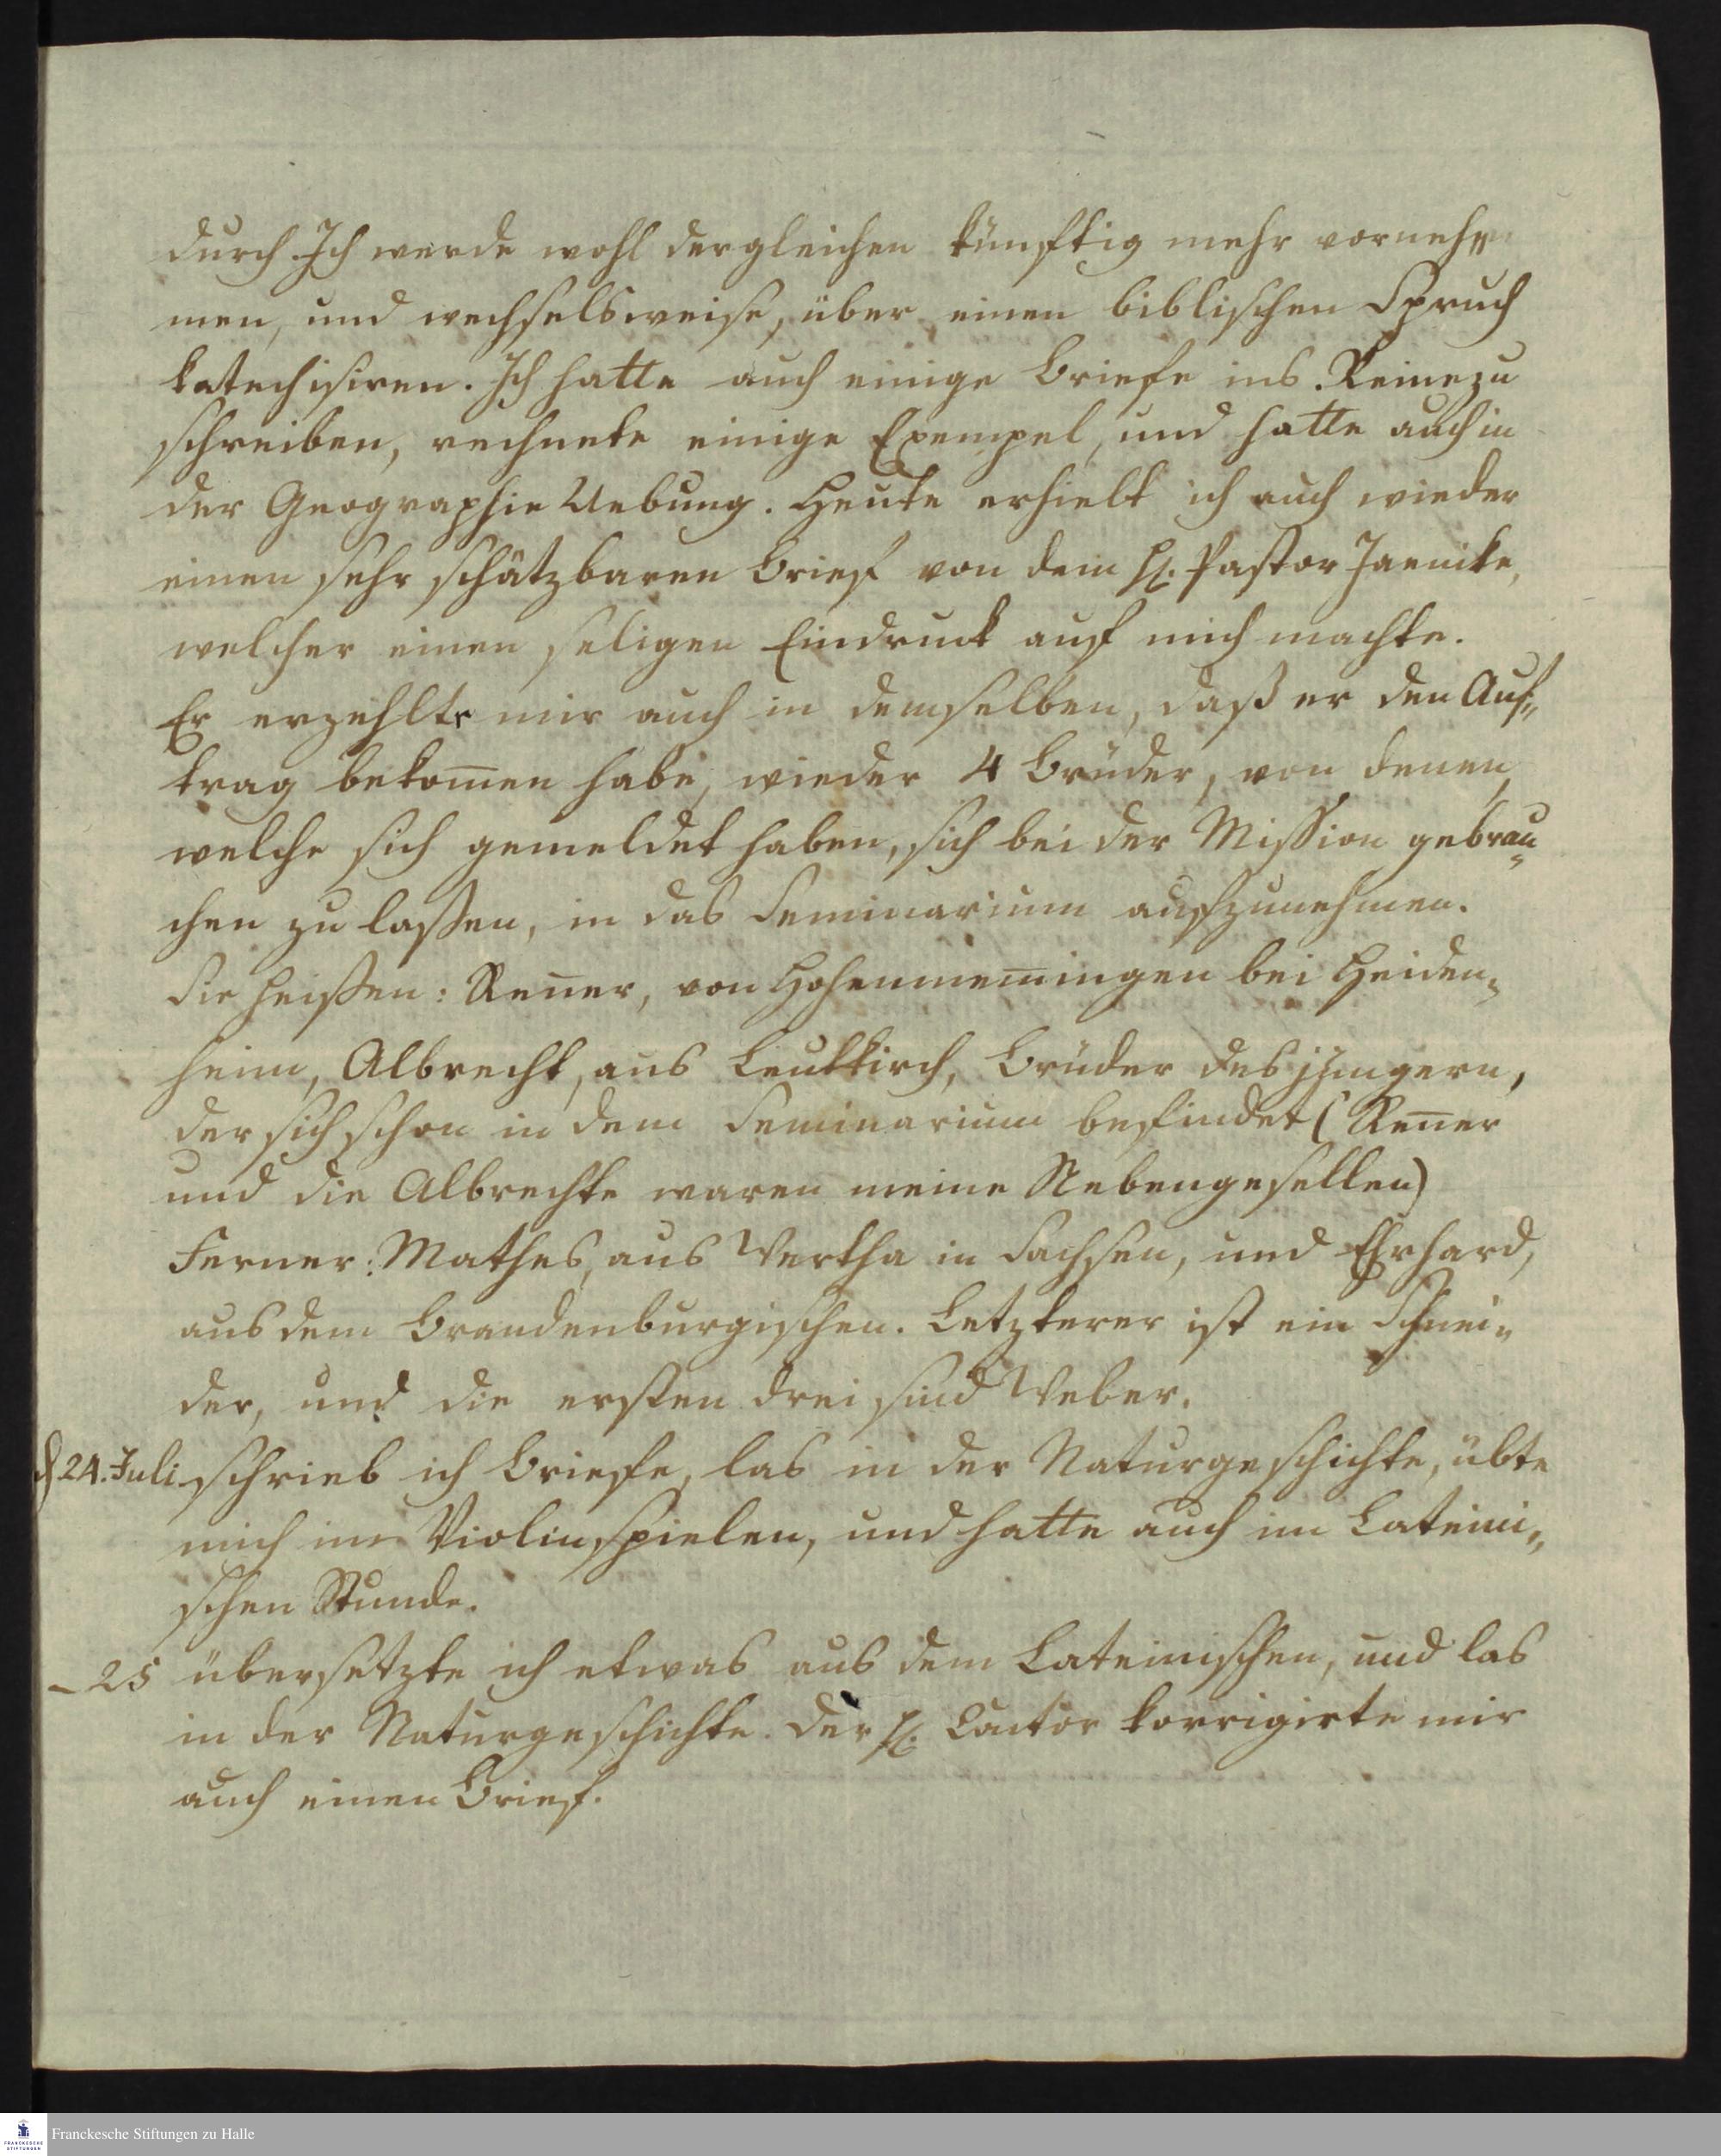 durch. Ich werde wohl dergleichen künftig mehr vorneh„
men, und wechselsweise, über einen biblischen Spruch
katechisiren. Ich hatte auch einige Briefe ins Reine zu
schreiben, rechnete einige Exempel, und hatte auch in
der Geographie Uebung. Heute erhielt ich auch wieder
einen sehr schätzbaren Brief von dem H. Pastor Jaenike,
welcher einen seligen Eindruck auf mich machte.
Er erzehlte mir auch in demselben, daß er den Auf„
trag bekom̄en habe, wieder 4 Brüder, von denen,
welche sich gemeldet haben, sich bei der Mission gebrau„
chen zu lassen, in das Seminarium aufzunehmen.
Sie heissen: Ren̄er, von Hohenmem̄ingen bei Heiden„
heim, Albrecht, aus Leutkirch, Brüder des jüngern,
der sich schon in dem Seminarium befindet (Ren̄er
und die Albrechte waren meine Nebengesellen)
Ferner: Mathes, aus Wertha in Sachsen, und Ehrhard,
aus dem Brandenburgischen. Letzterer ist ein Schnei„
der, und die ersten drei sind Weber.
d 24. Juli schrieb ich Briefe, las in der Naturgeschichte, übte
mich im Violinspielen, und hatte auch im Lateini„
schen Stunde.
– 25 übersetzte ich etwas aus dem Lateinischen, und las
in der Naturgeschichte. Der H. Cantor korrigirte mir
auch einen Brief.
Franckesche Stiftungen zu Halle
FRANCKESCHE
STIFTUNGEN